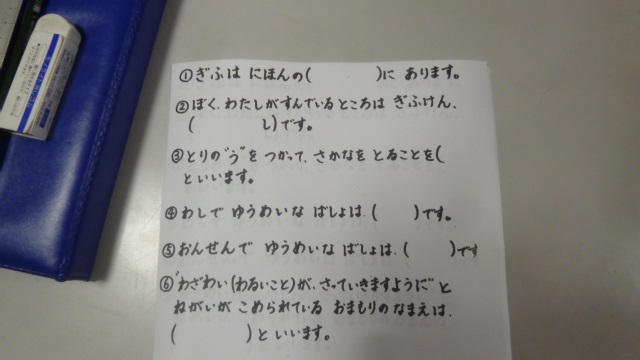 ①ぎふは にほんの(　　　)に あります。
②ぼく、わたしがすんでいるところは ぎふけん、
(　　　し)です。
③とりの"う"を つかって、さかなを とることを(
といいます。
④わしで ゆうめいな ばしょは、(　　)です。
⑤おんせんで ゆうめいな ばしょは、(　　)です
⑥"わざわい(わるいこと)が、さっていきますように"と
ねがいが こめられている おまもりのなまえは、
(　　　)と いいます。